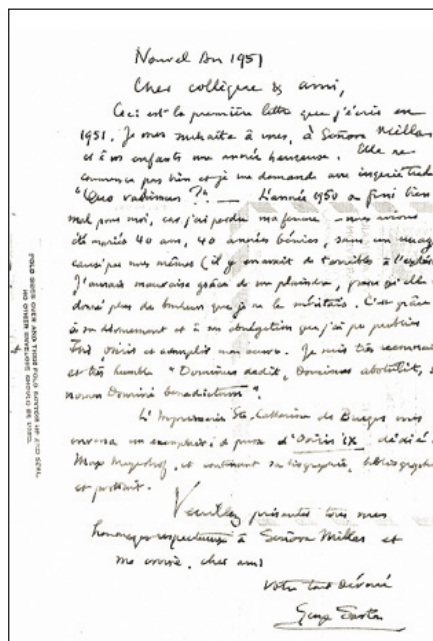 Nouvel An 1951
Cher collègue & ami,
Ceci est la première lettre que j'écris en
1951. Je vous souhaite à vous, à Señora Millas
et à vos enfants une année heureuse. Elle ne
commence pas bien et je me demande avec inquiétude
"Quo vadimus ?" — L'année 1950 a fini bien
mal pour moi, car j'ai perdu ma femme – nous avions
été mariés 40 ans, 40 années bénies, sans un nuage
causé par nous mêmes (il y en avait de terribles à
J'aurais mauvaise grâce de me plaindre, parce qu'elle
donné plus de bonheur que je ne le méritais. C'est grâce
à son dévouement et à son abnégation que j'ai pu publier
Isis, Osiris et accomplir mon œuvre. Je suis très
et très humble "Dominus dedit, Dominus abstulit, s
nomen Domini benedictum".
L'Imprimerie Ste Catherine de Bruges vous
enverra un exemplaire, d'Osiris IX dédié
Max Meyerhof, et contenant sa biographie,
et portrait.
Veuillez présenter tous mes
hommages respectueux à Señora Millas et
me croire, cher ami
Votre tout dévoué
George Sarton
FOLD SIDES OVER AND THEN FOLD BOTTOM UP AND SEAL
NO OTHER ENVELOPE SHOULD BE USED.